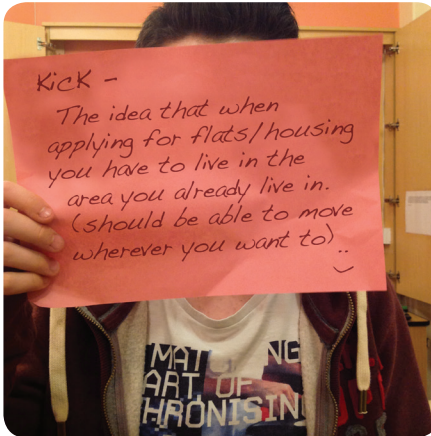 KicK -
The idea that when
applying for flats/housing
you have to live in the
area you already live in.
(should be able to move
wherever you want to)
MAT NG
ART OF
HRONISIN